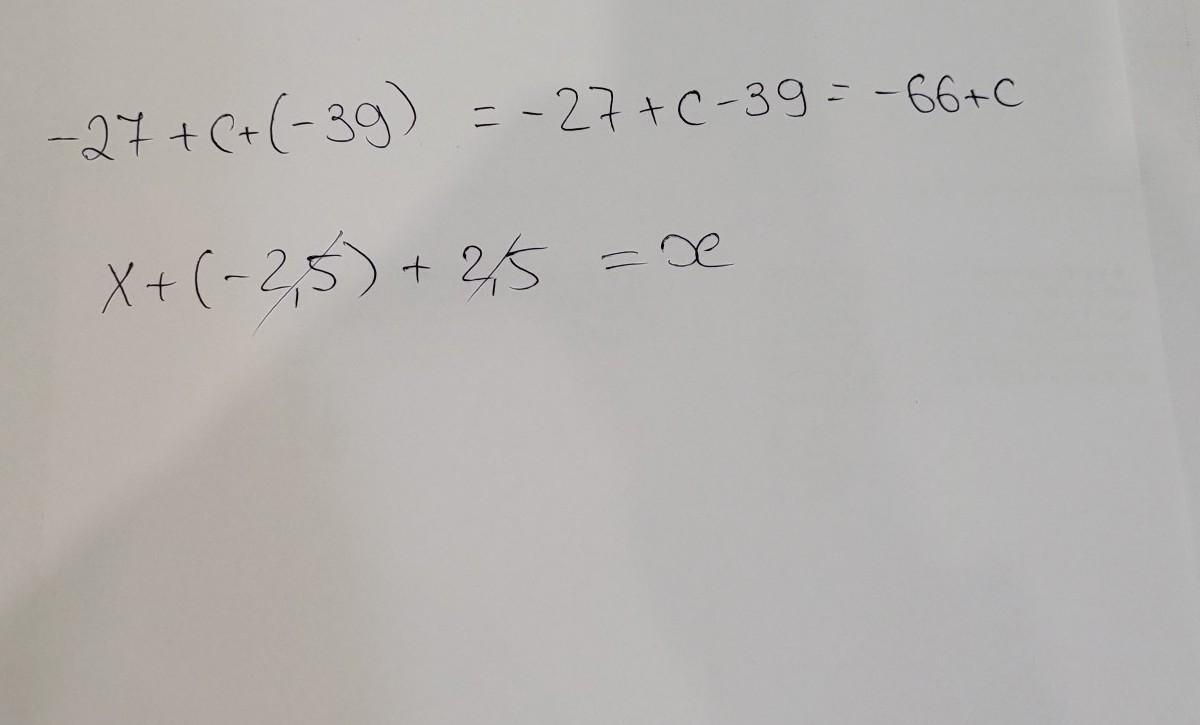 -27 + c + (-39) = -27 + c - 39 = -66 + c
x + (-2,5) + 2,5 = x